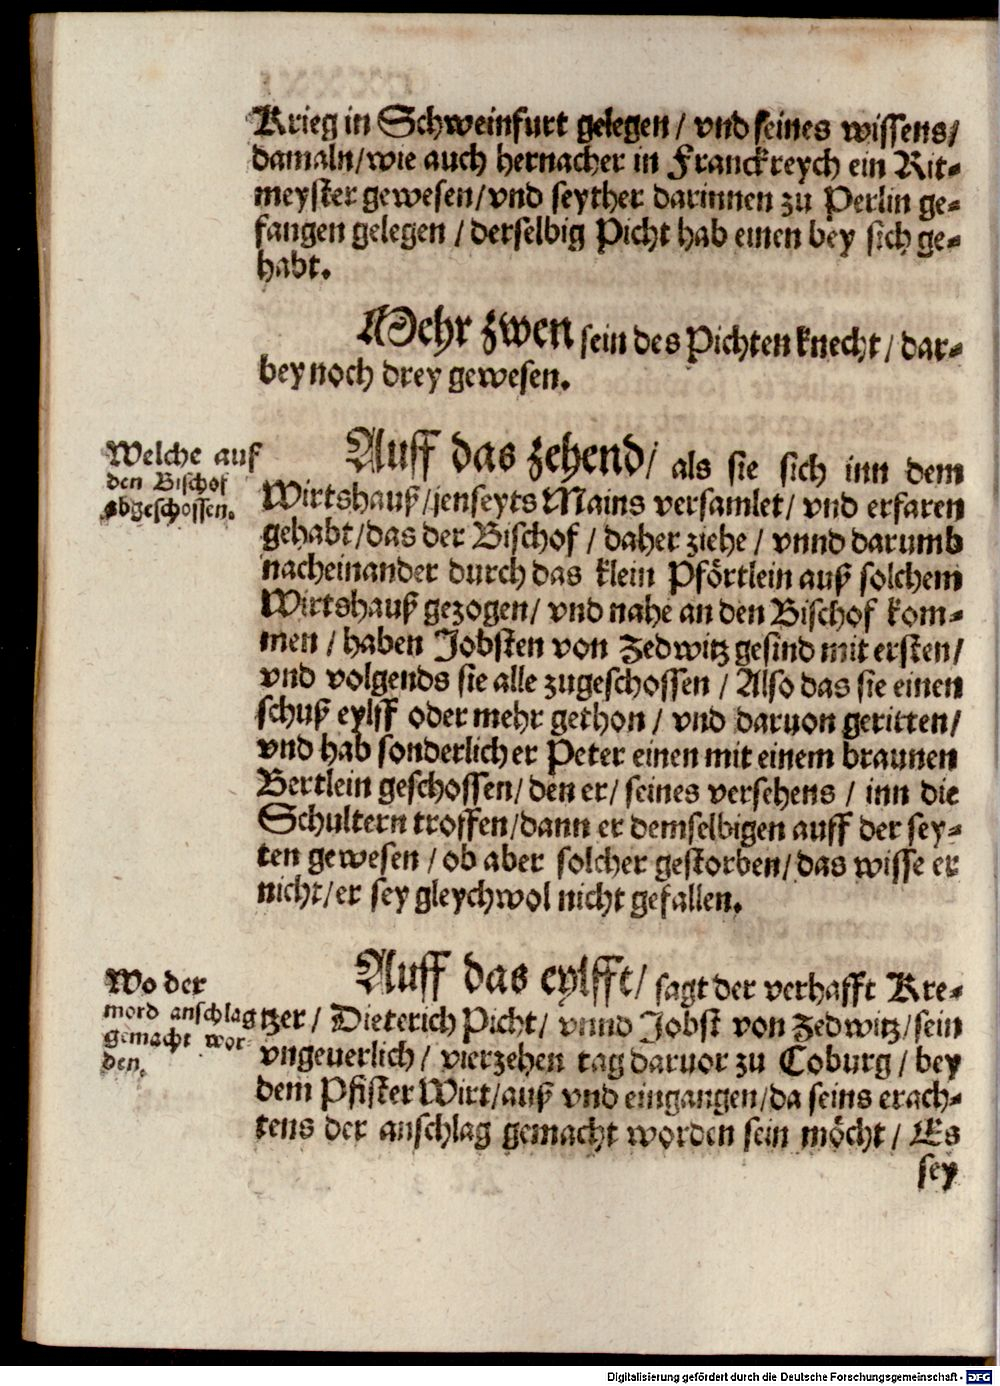 Krieg in Schweinfurt gelegen / vnd seines wissens /
damaln / wie auch hernacher in Franckreych ein Rit-
meyster gewesen / vnd seyther darinnen zu Perlin ge-
fangen gelegen / derselbig Picht hab einen bey sich ge-
habt.
Mehr zwen sein des Pichten knecht / dar-
bey noch drey gewesen.
Welche auf
den Bischof
abgeschossen.
Auff das zehend / als sie sich inn dem
Wirtshauß / jenseyts Mains versamlet / vnd erfaren
gehabt / das der Bischof / daher ziehe / vnnd darumb
nacheinander durch das klein Pförtlein auß solchem
Wirtshauß gezogen / vnd nahe an den Bischof kom-
men / haben Jobsten von Zedwitz gesind mit ersten /
vnd volgends sie alle zugeschossen / Also das sie einen
schuß eylff oder mehr gethon / vnd daruon geritten /
vnd hab sonderlich er Peter einen mit einem braunen
Bertlein geschossen / den er / seines versehens / inn die
Schultern troffen / dann er demselbigen auff der sey-
ten gewesen / ob aber solcher gestorben / das wisse er
nicht / er sey gleychwol nicht gefallen.
Wo der
mord anschlag
gemacht wor-
den.
Auff das eylfft / sagt der verhafft Kre-
tzer / Dieterich Picht / vnnd Jobst von Zedwitz / sein
vngeuerlich / vierzehen tag daruor zu Coburg / bey
dem Pfister Wirt / auß vnd eingangen / da seins erach-
tens der anschlag gemacht worden sein möcht / Es
sey
Digitalisierung gefördert durch die Deutsche Forschungsgemeinschaft - DFG